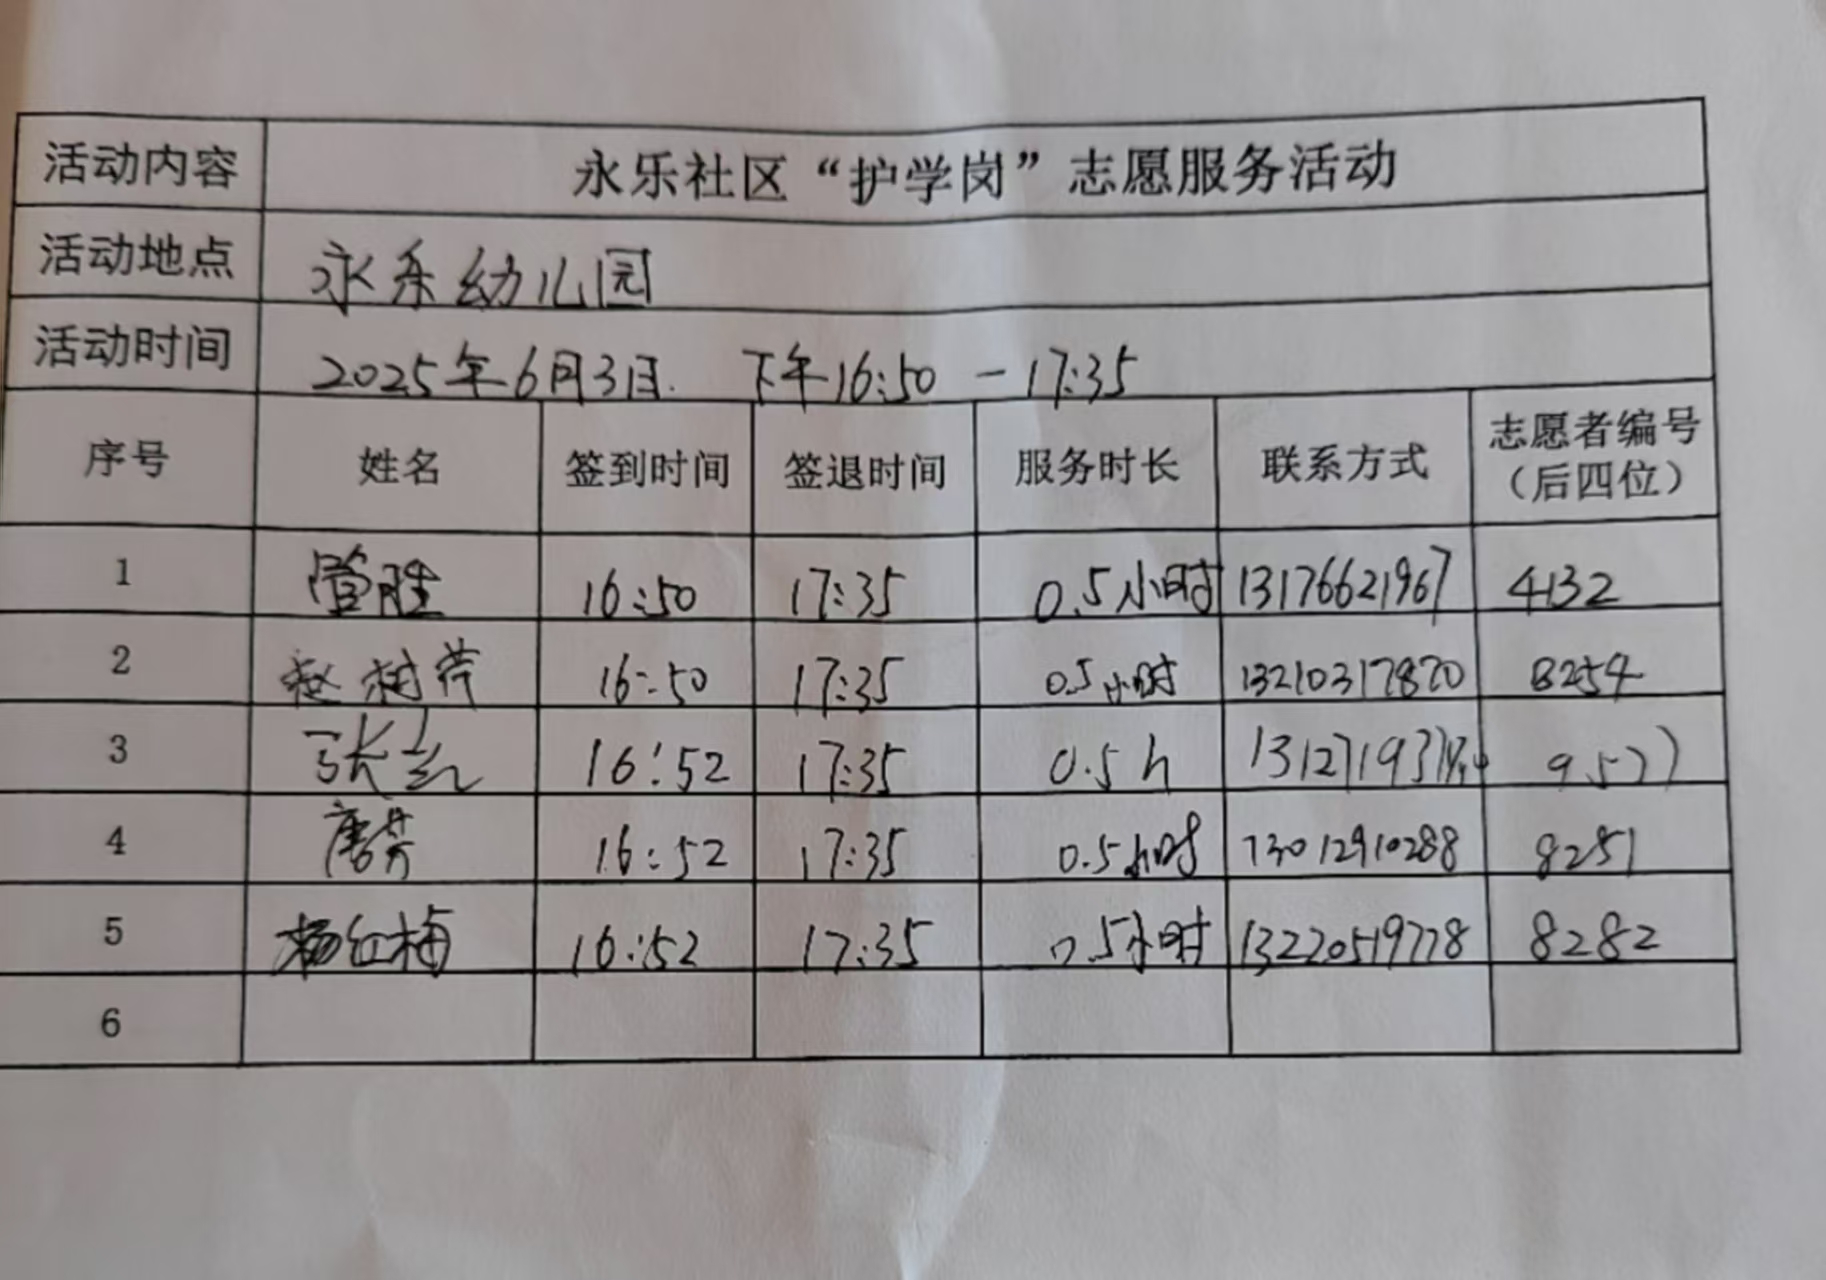 活动内容 永乐社区“护学岗”志愿服务活动
活动地点 永乐幼儿园
活动时间 2025年6月3日. 下午16:50 - 17:35
序号 姓名 签到时间 签退时间 服务时长 联系方式 志愿者编号（后四位）
1 管胜 16:50 17:35 0.5小时 13176621967 4132
2 赵树芹 16:50 17:35 0.5小时 13210317870 8254
3 16:52 17:35 0.5h 9577
4 唐芳 16:52 17:35 0.5小时 13012910288 8251
5 杨红梅 16:52 17:35 0.5小时 13220519778 8282
6